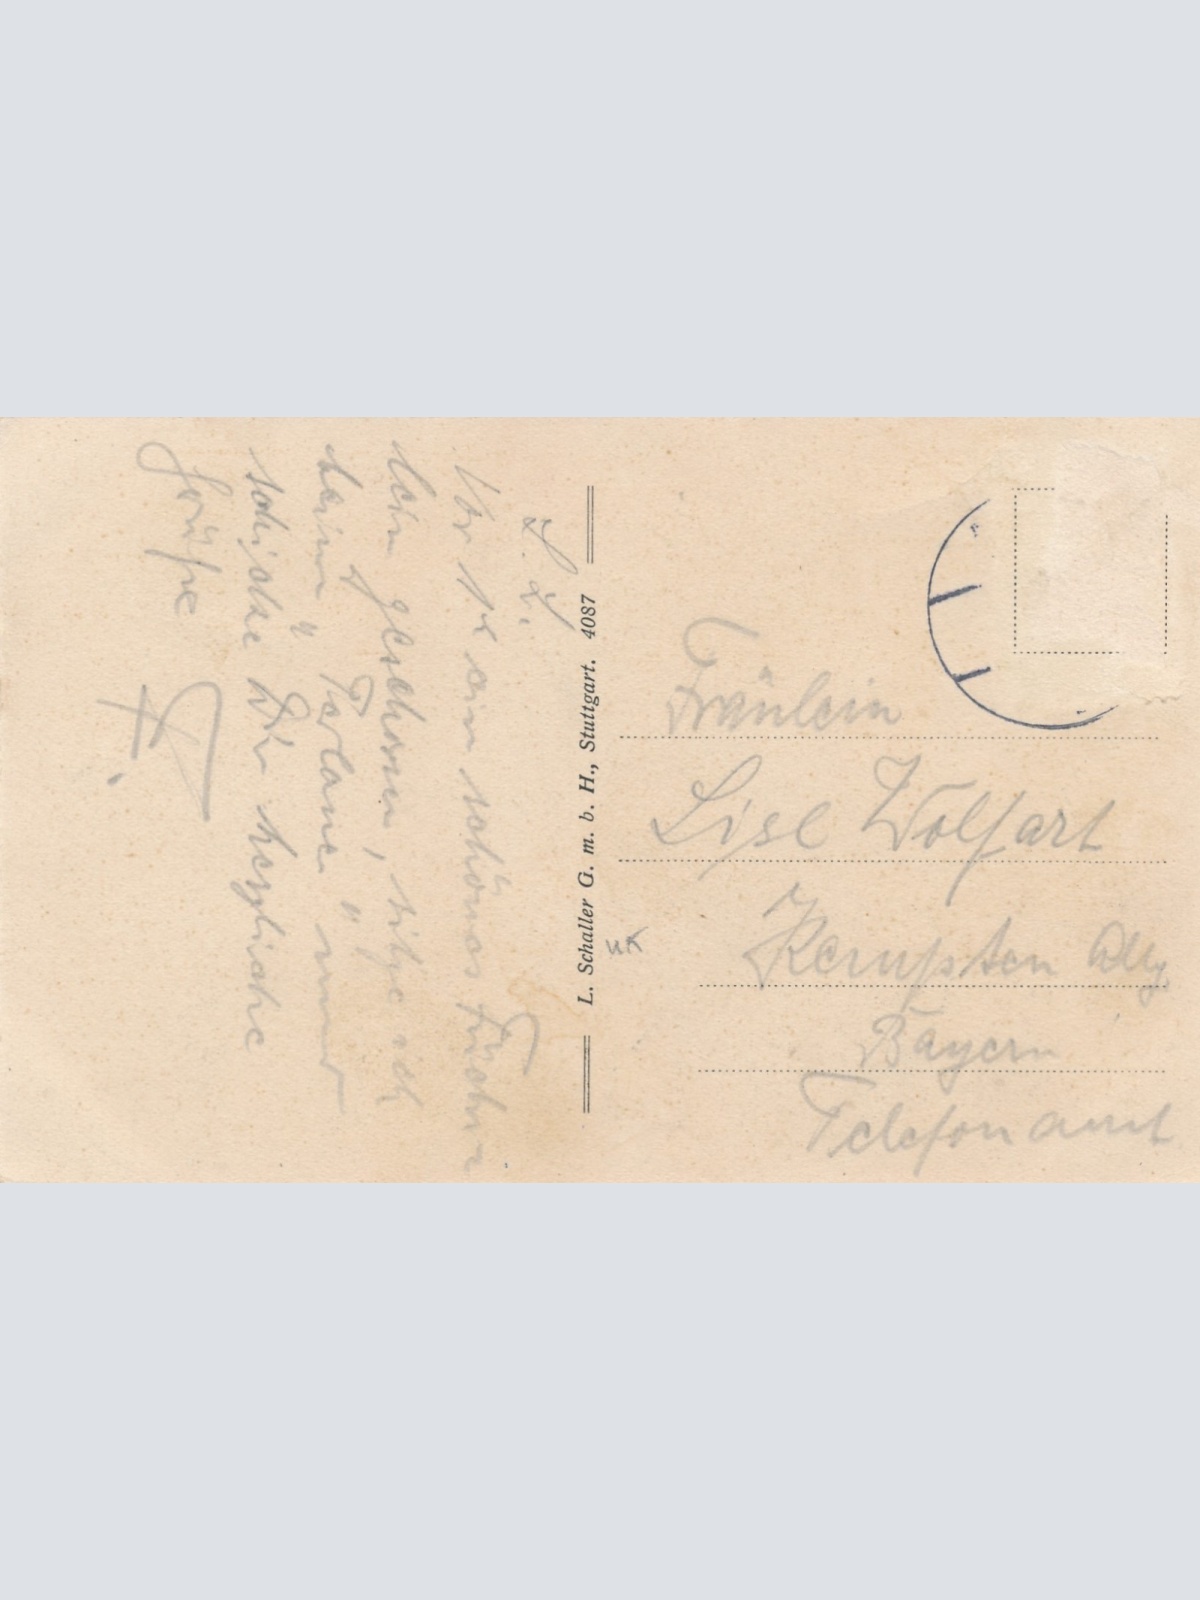 L. L.
Vor ein schönes
lein geschoren, sitze ich
beim "
schicke Dir herzliche
Grüße
L. Schaller G. m. b. H., Stuttgart. 4087
Fräulein
Lisl Wolfart
Kempten Allg
Bayern
Telefonamt